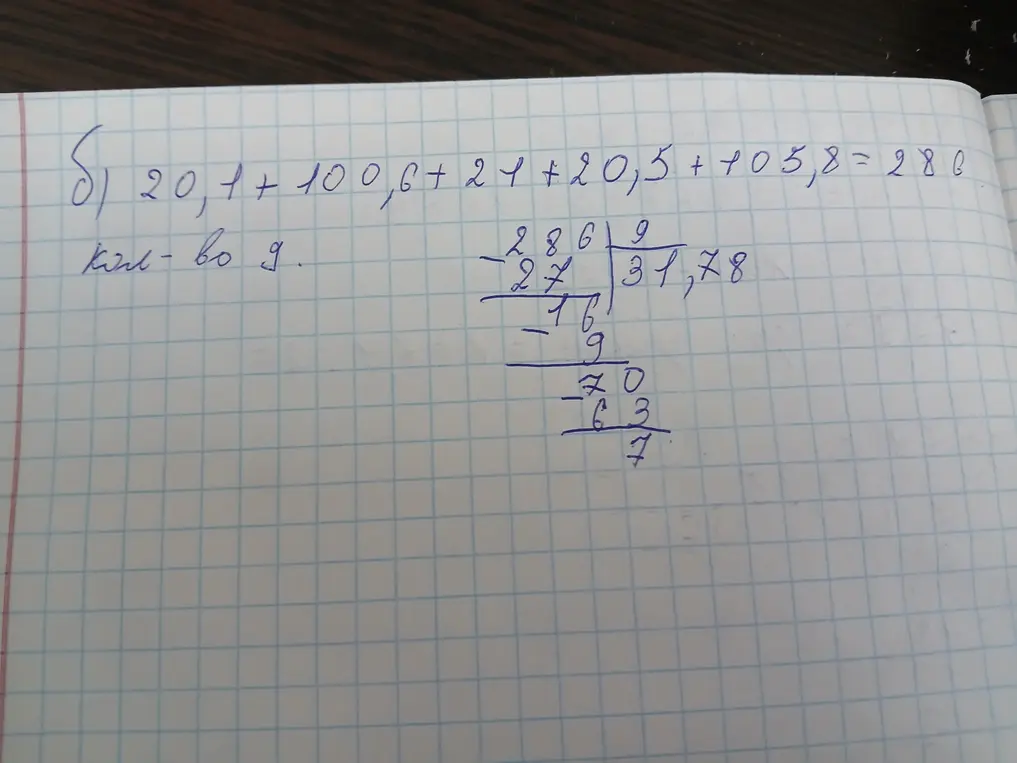 б) 20,1 + 100,6 + 21 + 20,5 + 105,8 = 286
кол-во 9.
- 286 | 9
27 | 31,78
- 16
9
- 70
63
7